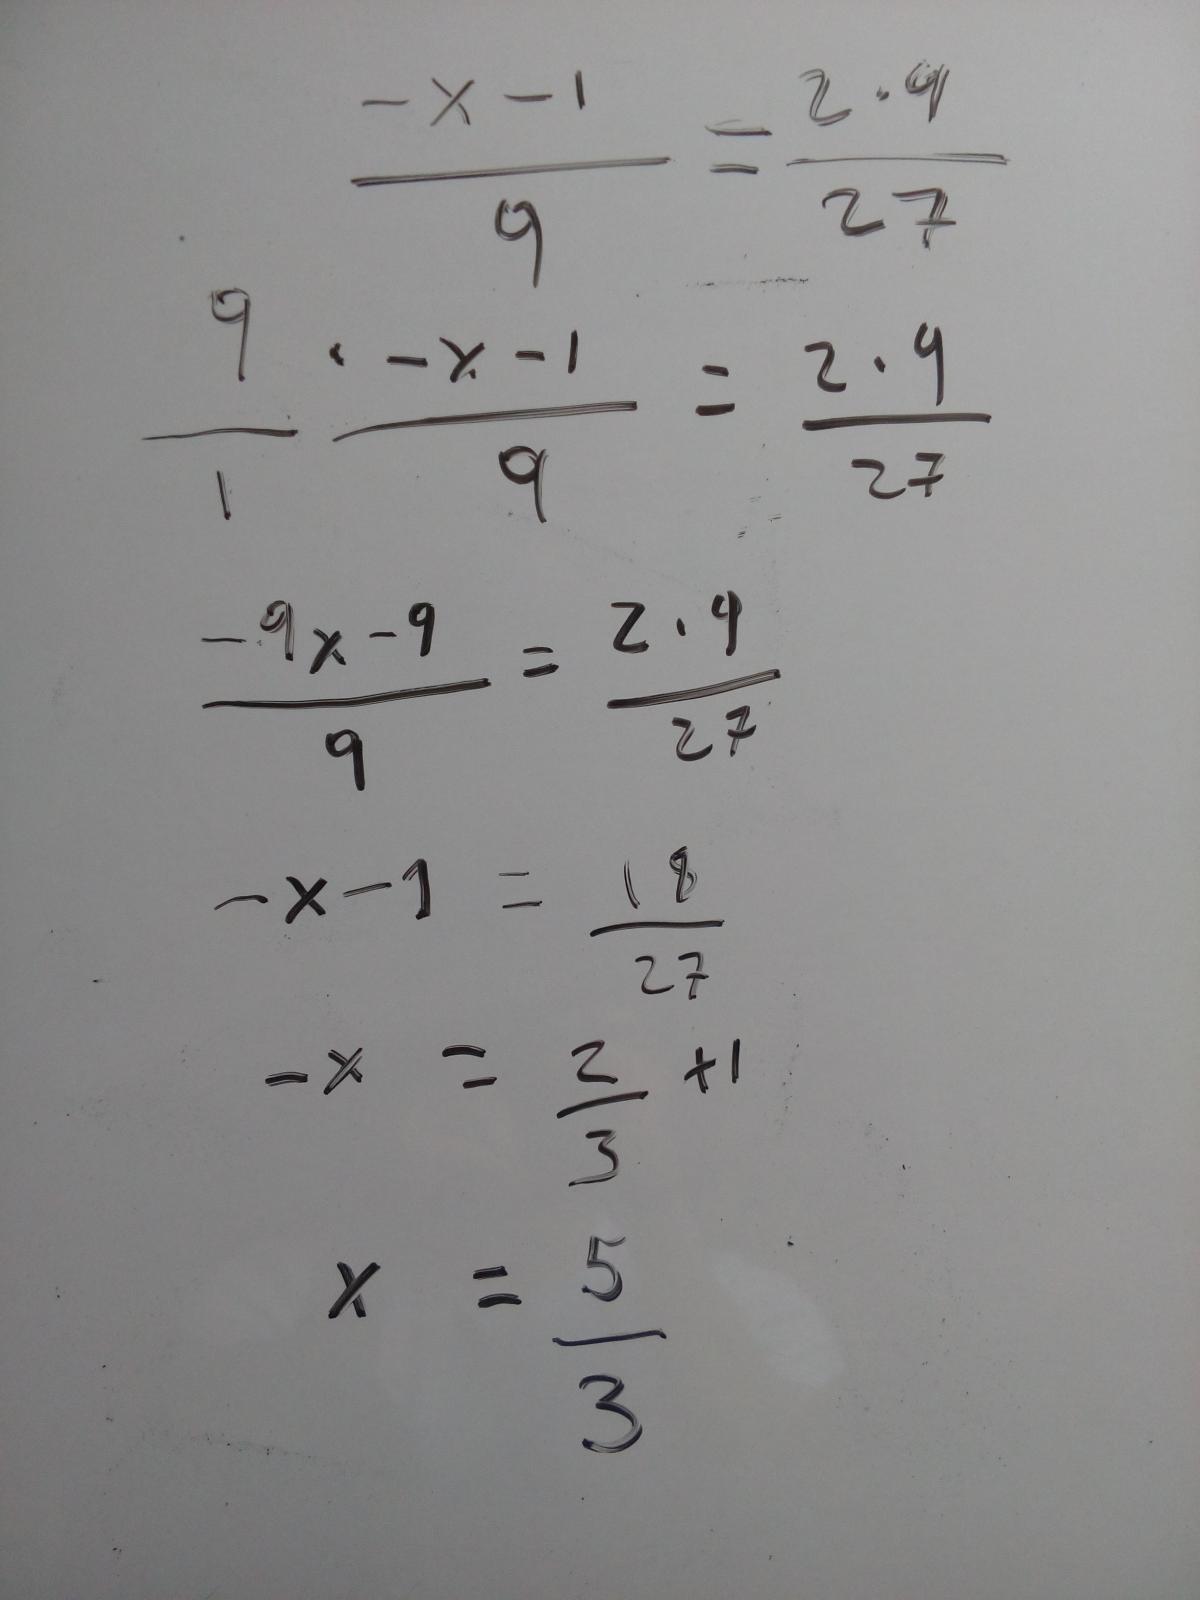 -x-1/9 = 2·9/27
9/1 · -x-1/9 = 2·9/27
-9x-9/9 = 2·9/27
-x-1 = 18/27
-x = 2/3 +1
x = 5/3